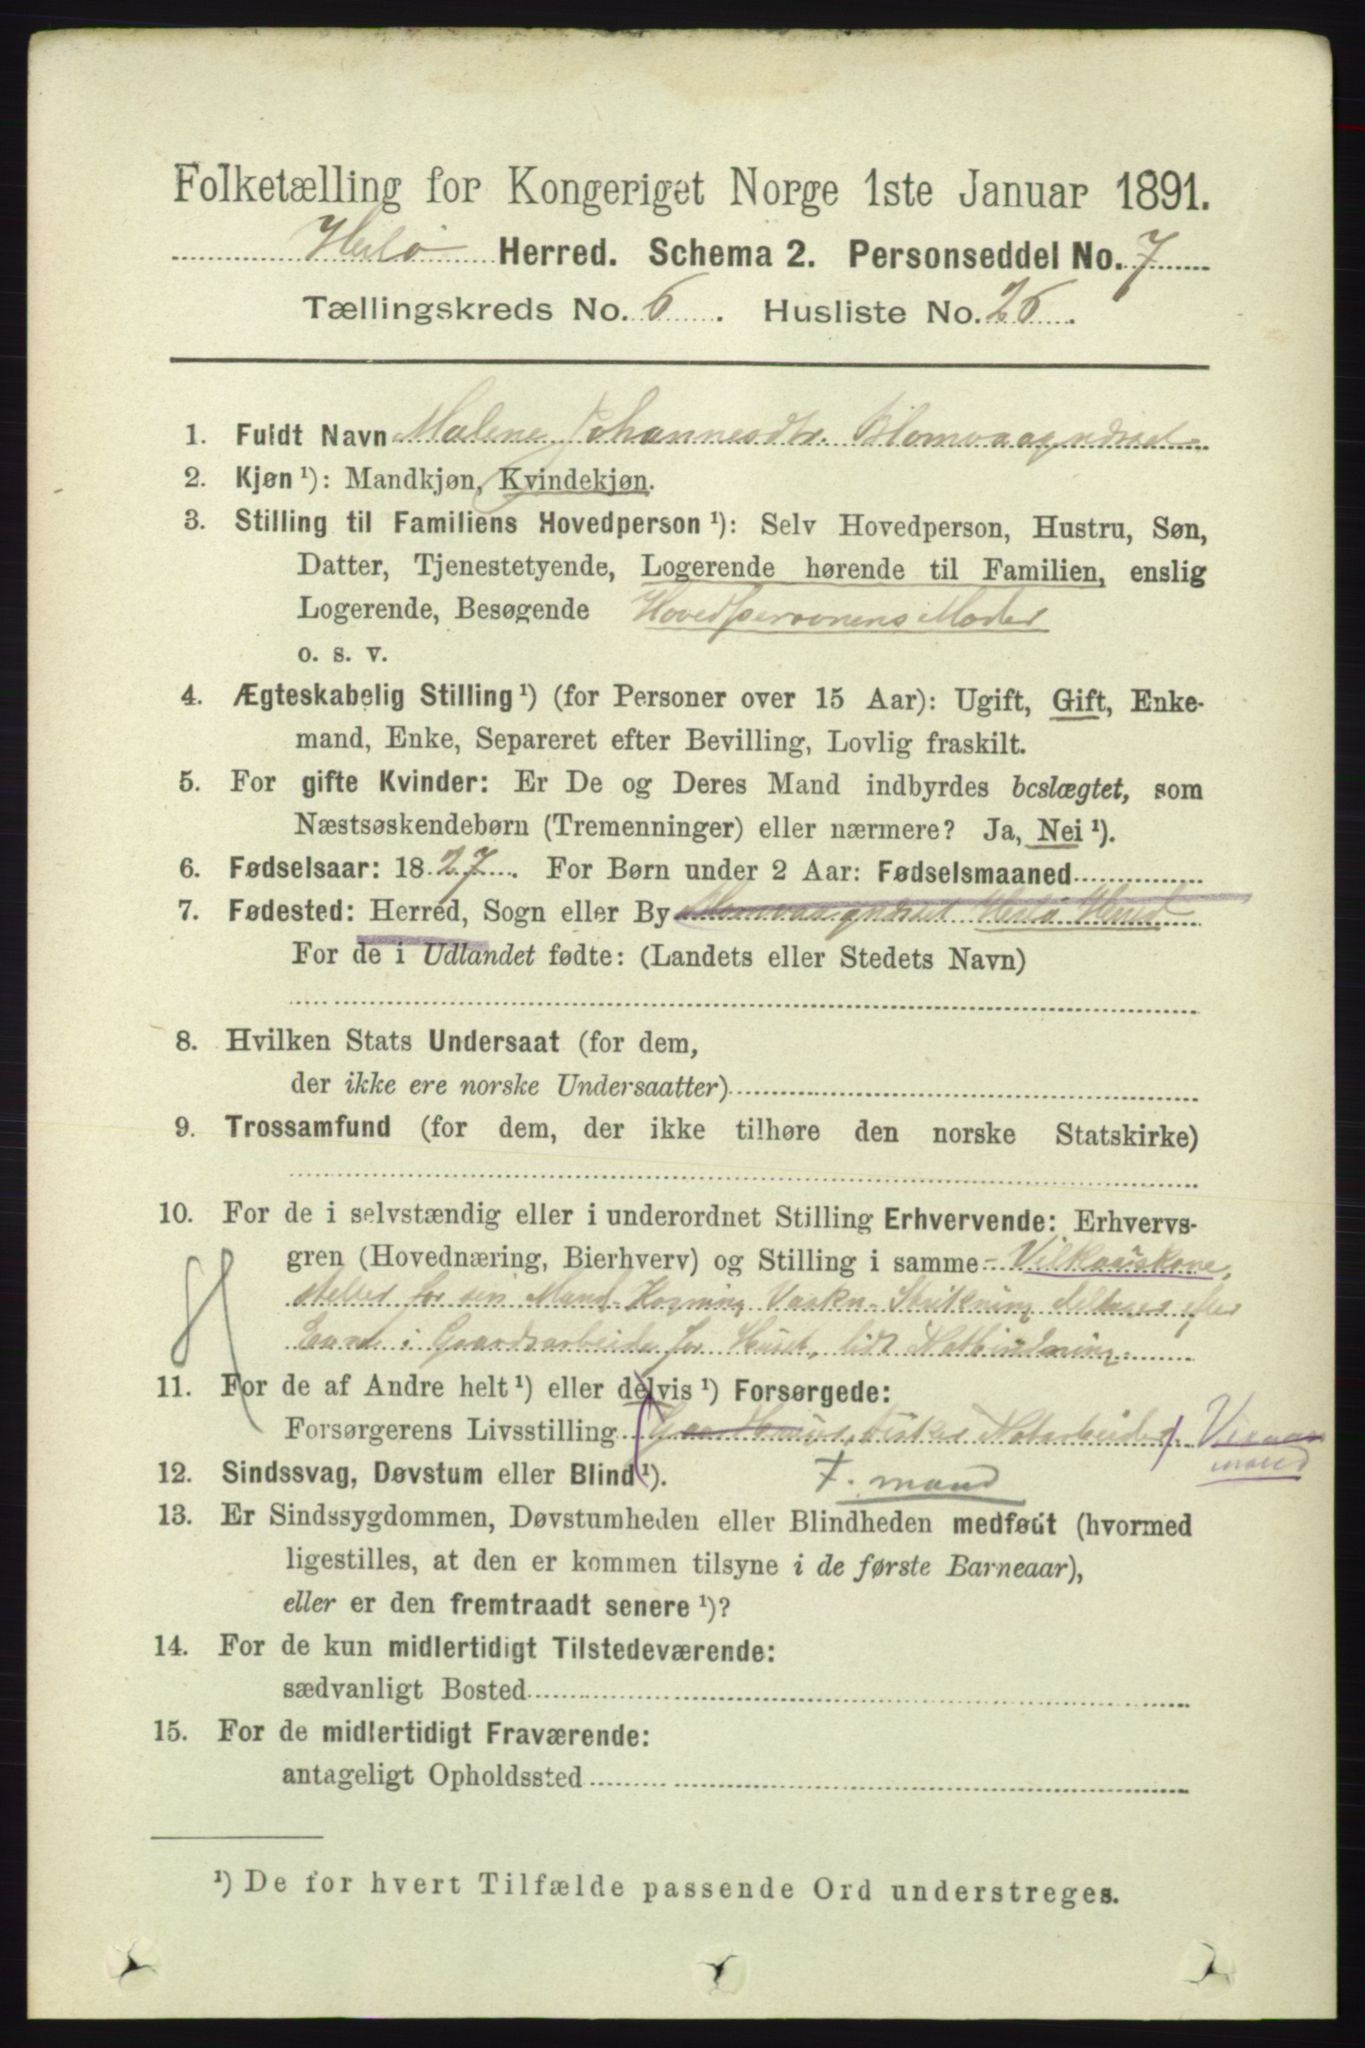 Folketælling for Kongeriget Norge 1ste Januar 1891.
Herlø Herred. Schema 2. Personseddel No. 7
Tællingskreds No. 6. Husliste No. 26.
1. Fuldt Navn Malene Johannesdtr. Blomvaagndset
2. Kjøn ¹): Mandkjøn, Kvindekjøn.
3. Stilling til Familiens Hovedperson ¹): Selv Hovedperson, Hustru, Søn,
Datter, Tjenestetyende, Logerende hørende til Familien, enslig
Logerende, Besøgende Hovedpersonens Moder
o. s. v.
4. Ægteskabelig Stilling ¹) (for Personer over 15 Aar): Ugift, Gift, Enke-
mand, Enke, Separeret efter Bevilling, Lovlig fraskilt.
5. For gifte Kvinder: Er De og Deres Mand indbyrdes beslægtet, som
Næstsøskendebørn (Tremenninger) eller nærmere? Ja, Nei ¹).
6. Fødselsaar: 1827. For Børn under 2 Aar: Fødselsmaaned
7. Fødested: Herred, Sogn eller By Blomvaagndset Herlø Herred
For de i Udlandet fødte: (Landets eller Stedets Navn)
8. Hvilken Stats Undersaat (for dem,
der ikke ere norske Undersaatter)
9. Trossamfund (for dem, der ikke tilhøre den norske Statskirke)
10. For de i selvstændig eller i underordnet Stilling Erhvervende: Erhvervs-
gren (Hovednæring, Bierhverv) og Stilling i samme - Vilkaarskone,
steller for sin Mand Kogning Vaskn. Strikning deltager efter
Evne i Gaardsarbeide for Huset, lidt Notbindning
11. For de af Andre helt ¹) eller delvis ¹) Forsørgede:
Forsørgerens Livsstilling Fisker Notarbeider
mand
12. Sindssvag, Døvstum eller Blind ¹). F. mand
13. Er Sindssygdommen, Døvstumheden eller Blindheden medfødt (hvormed
ligestilles, at den er kommen tilsyne i de første Barneaar),
eller er den fremtraadt senere ¹)?
14. For de kun midlertidigt Tilstedeværende:
sædvanligt Bosted
15. For de midlertidigt Fraværende:
antageligt Opholdssted
¹) De for hvert Tilfælde passende Ord understreges.